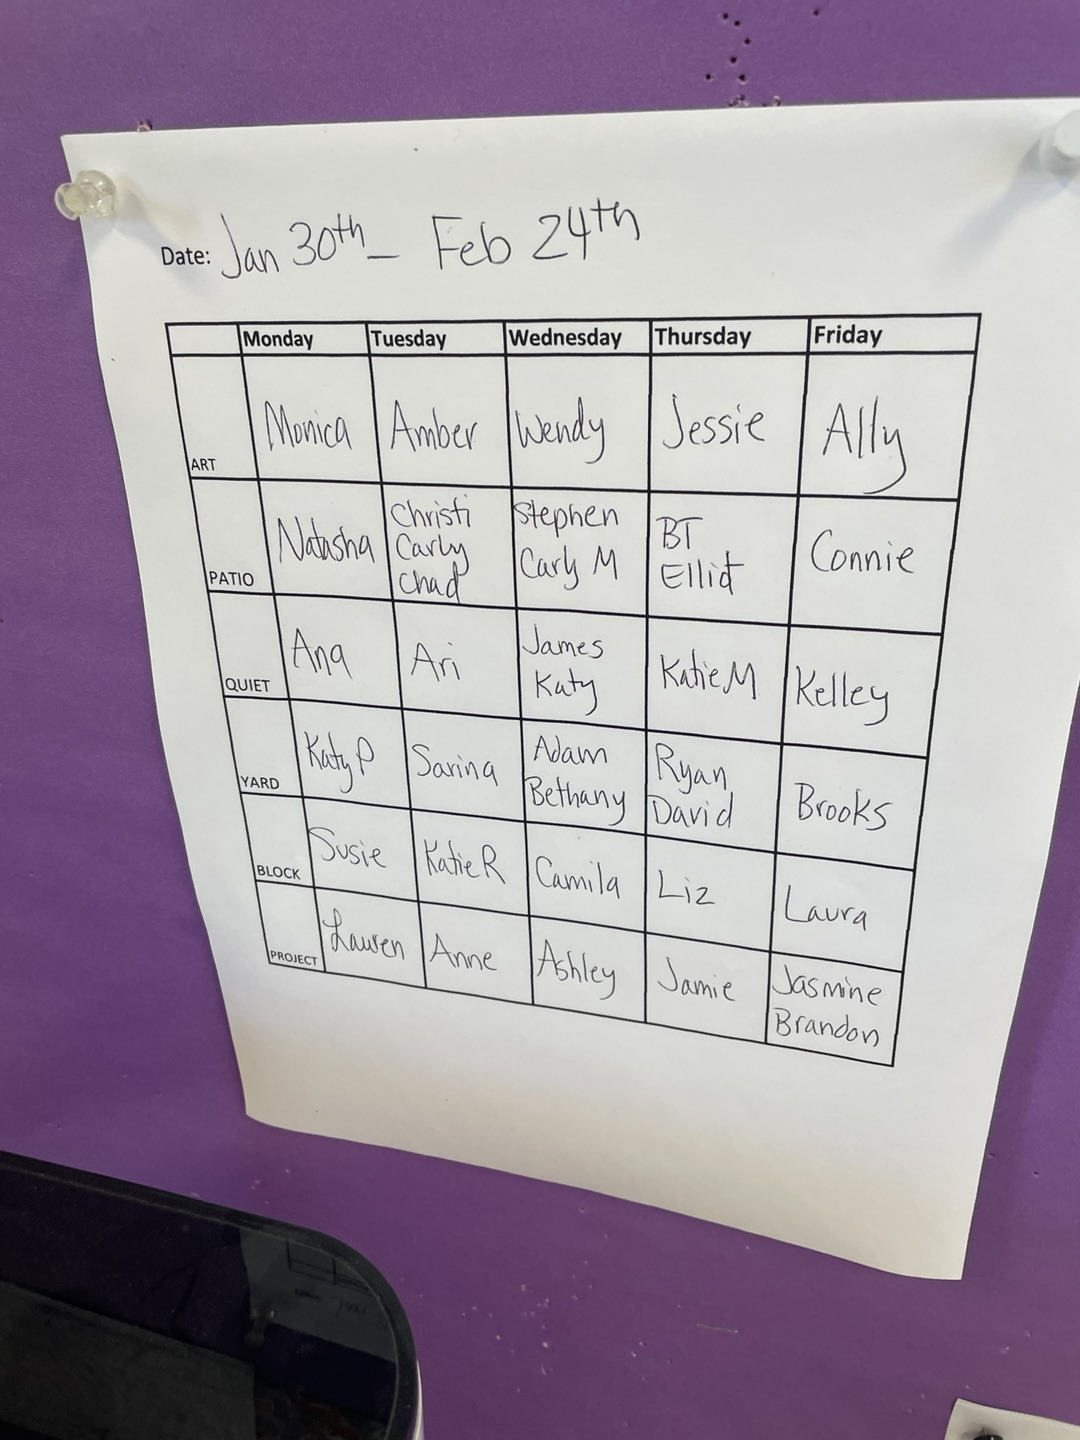 Date: Jan 30th – Feb 24th
Monday Tuesday Wednesday Thursday Friday
ART Monica Amber Wendy Jessie Ally
PATIO Natasha Christi Carly Chad Stephen Carly M BT Elliot Connie
QUIET Ana Ari James Katy Katie M Kelley
YARD Katy P Sarina Adam Bethany Ryan David Brooks
BLOCK Susie Katie R Camila Liz Laura
PROJECT Lauren Anne Ashley Jamie Jasmine Brandon